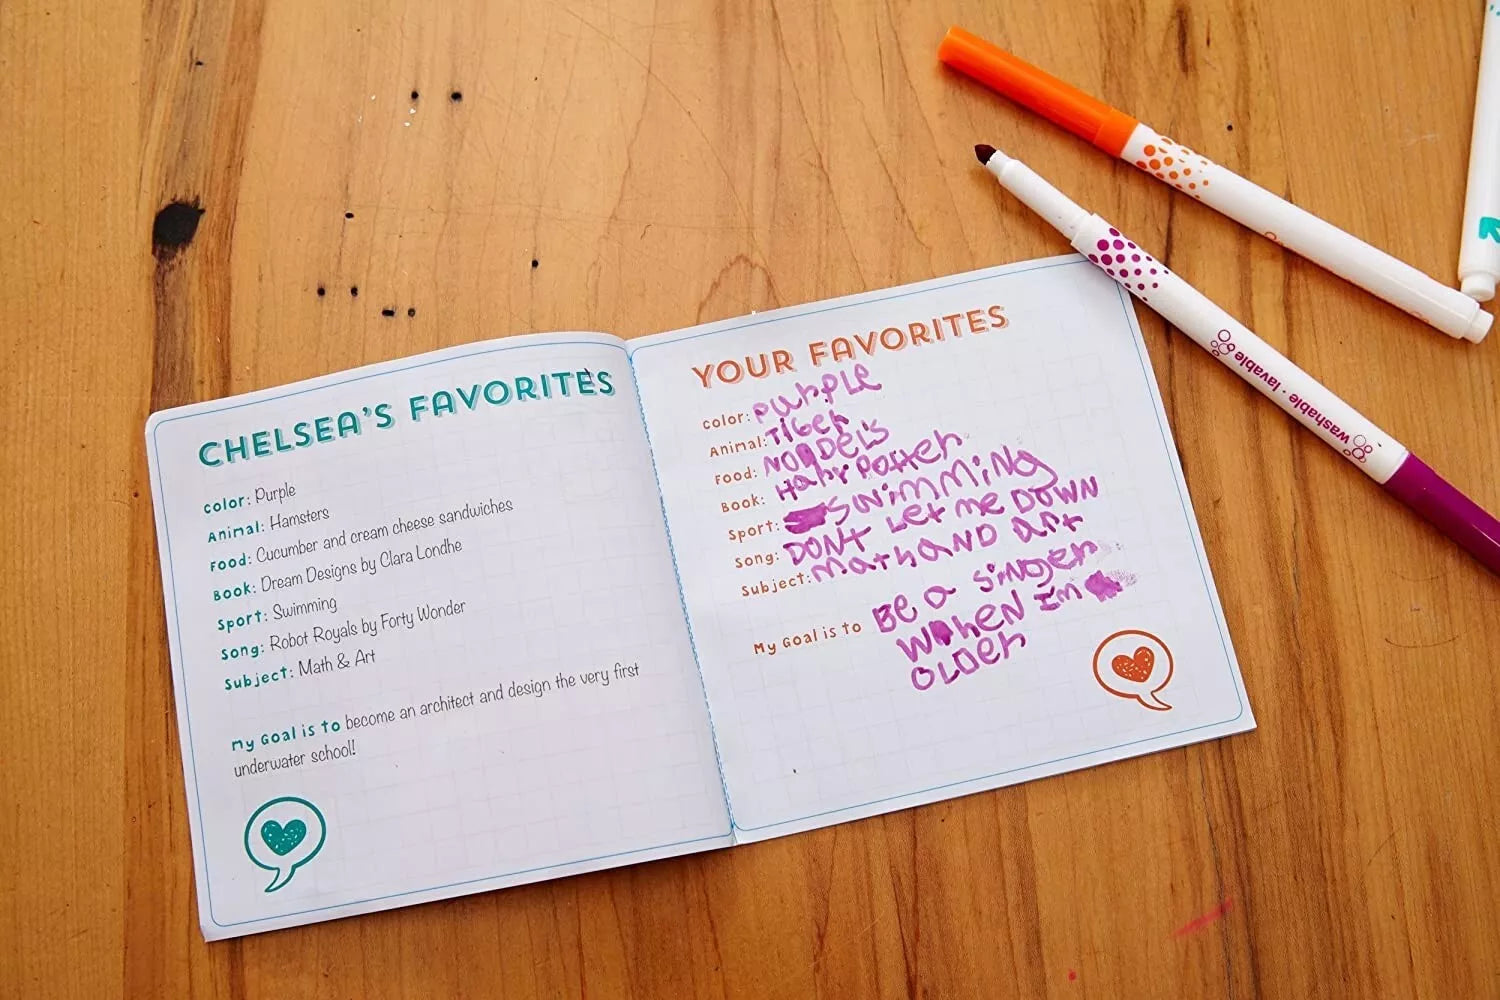 CHELSEA'S FAVORITES
Color: Purple
Animal: Hamsters
Food: Cucumber and cream cheese sandwiches
Book: Dream Designs by Clara Londhe
Sport: Swimming
Song: Robot Royals by Forty Wonder
Subject: Math & Art
My Goal is to become an architect and design the very first
underwater school!
YOUR FAVORITES
Color: PurPLE
Animal: TIGER
Food: NOODELS
Book: HARY POtter
Sport: SWiMMiNg
Song: DONt LEt me DOWN
Subject: math AND art
My Goal is to BE a SiNgER
WhEN Im
OLDER
washable • lavable